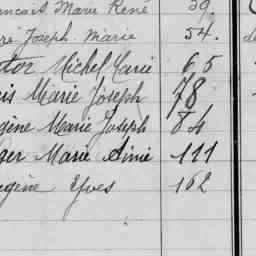 ançais Marie René 59.
re Joseph Marie 54.
tor Michel Marie 65
is Marie Joseph 78
gène Marie Joseph 84
ger Marie Aimé 111
ugène Yves 162